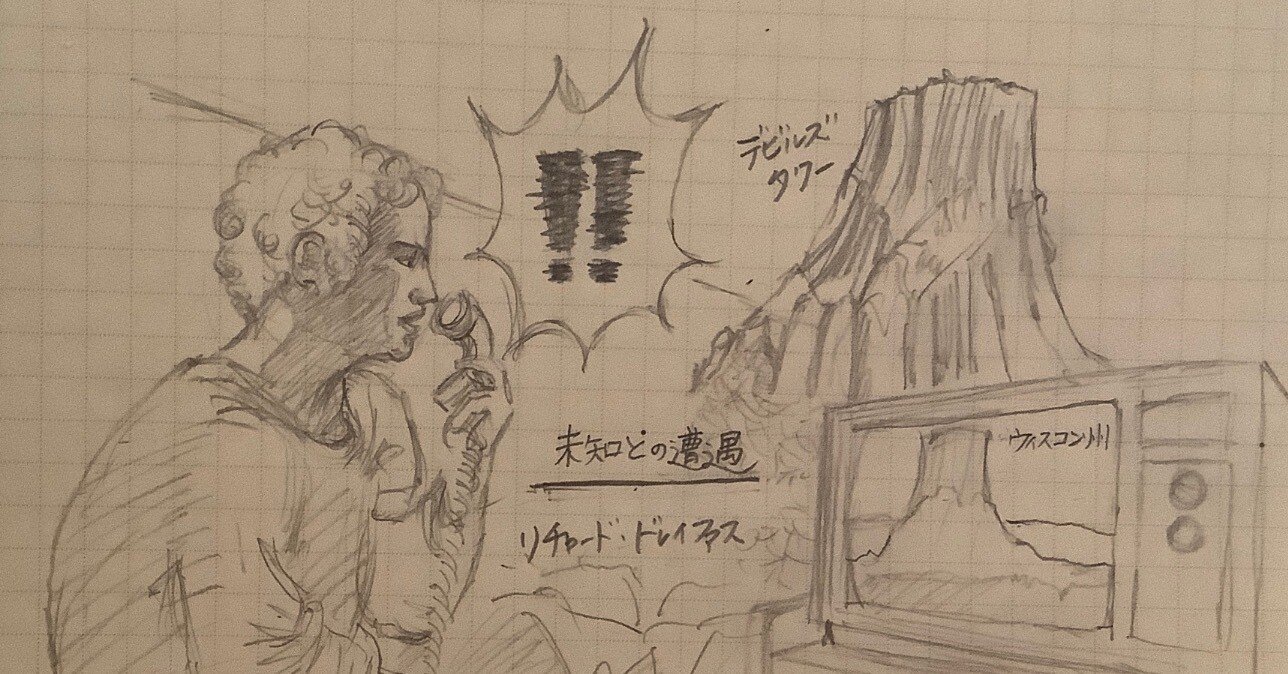 !!
デビルズ
タワー
ウィスコン州
未知との遭遇
リチャード・ドレイファス